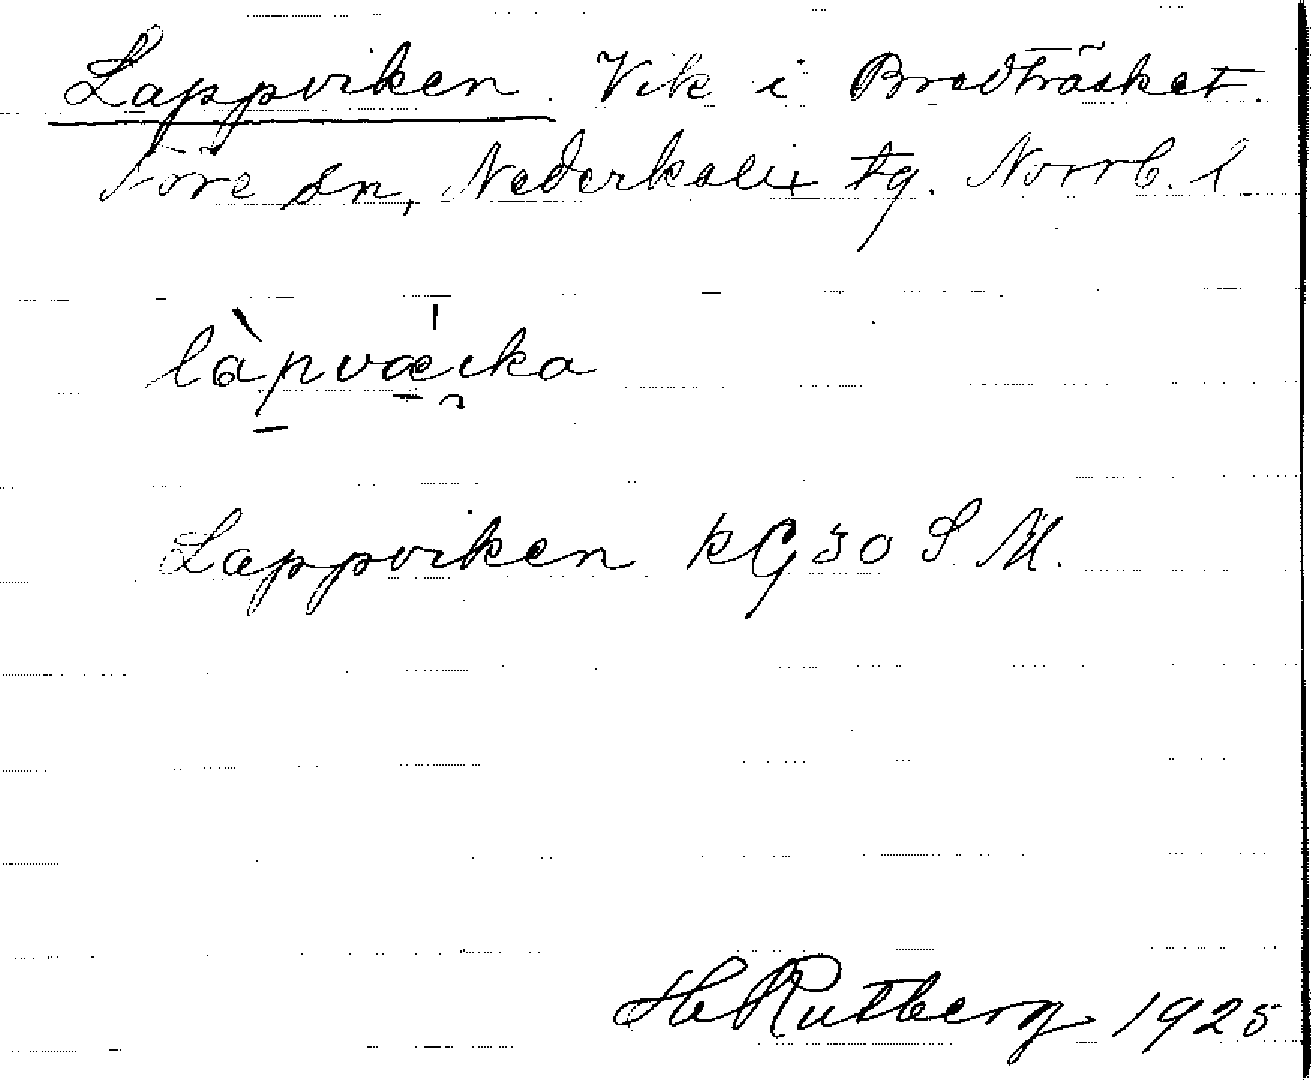 Lappviken. Vik i Bredträsket.
Töre sn, Nederkalix tg. Norrb. l.
làpvæ̍ika
Lappviken kG 30 S. M.
H Rutberg 1925